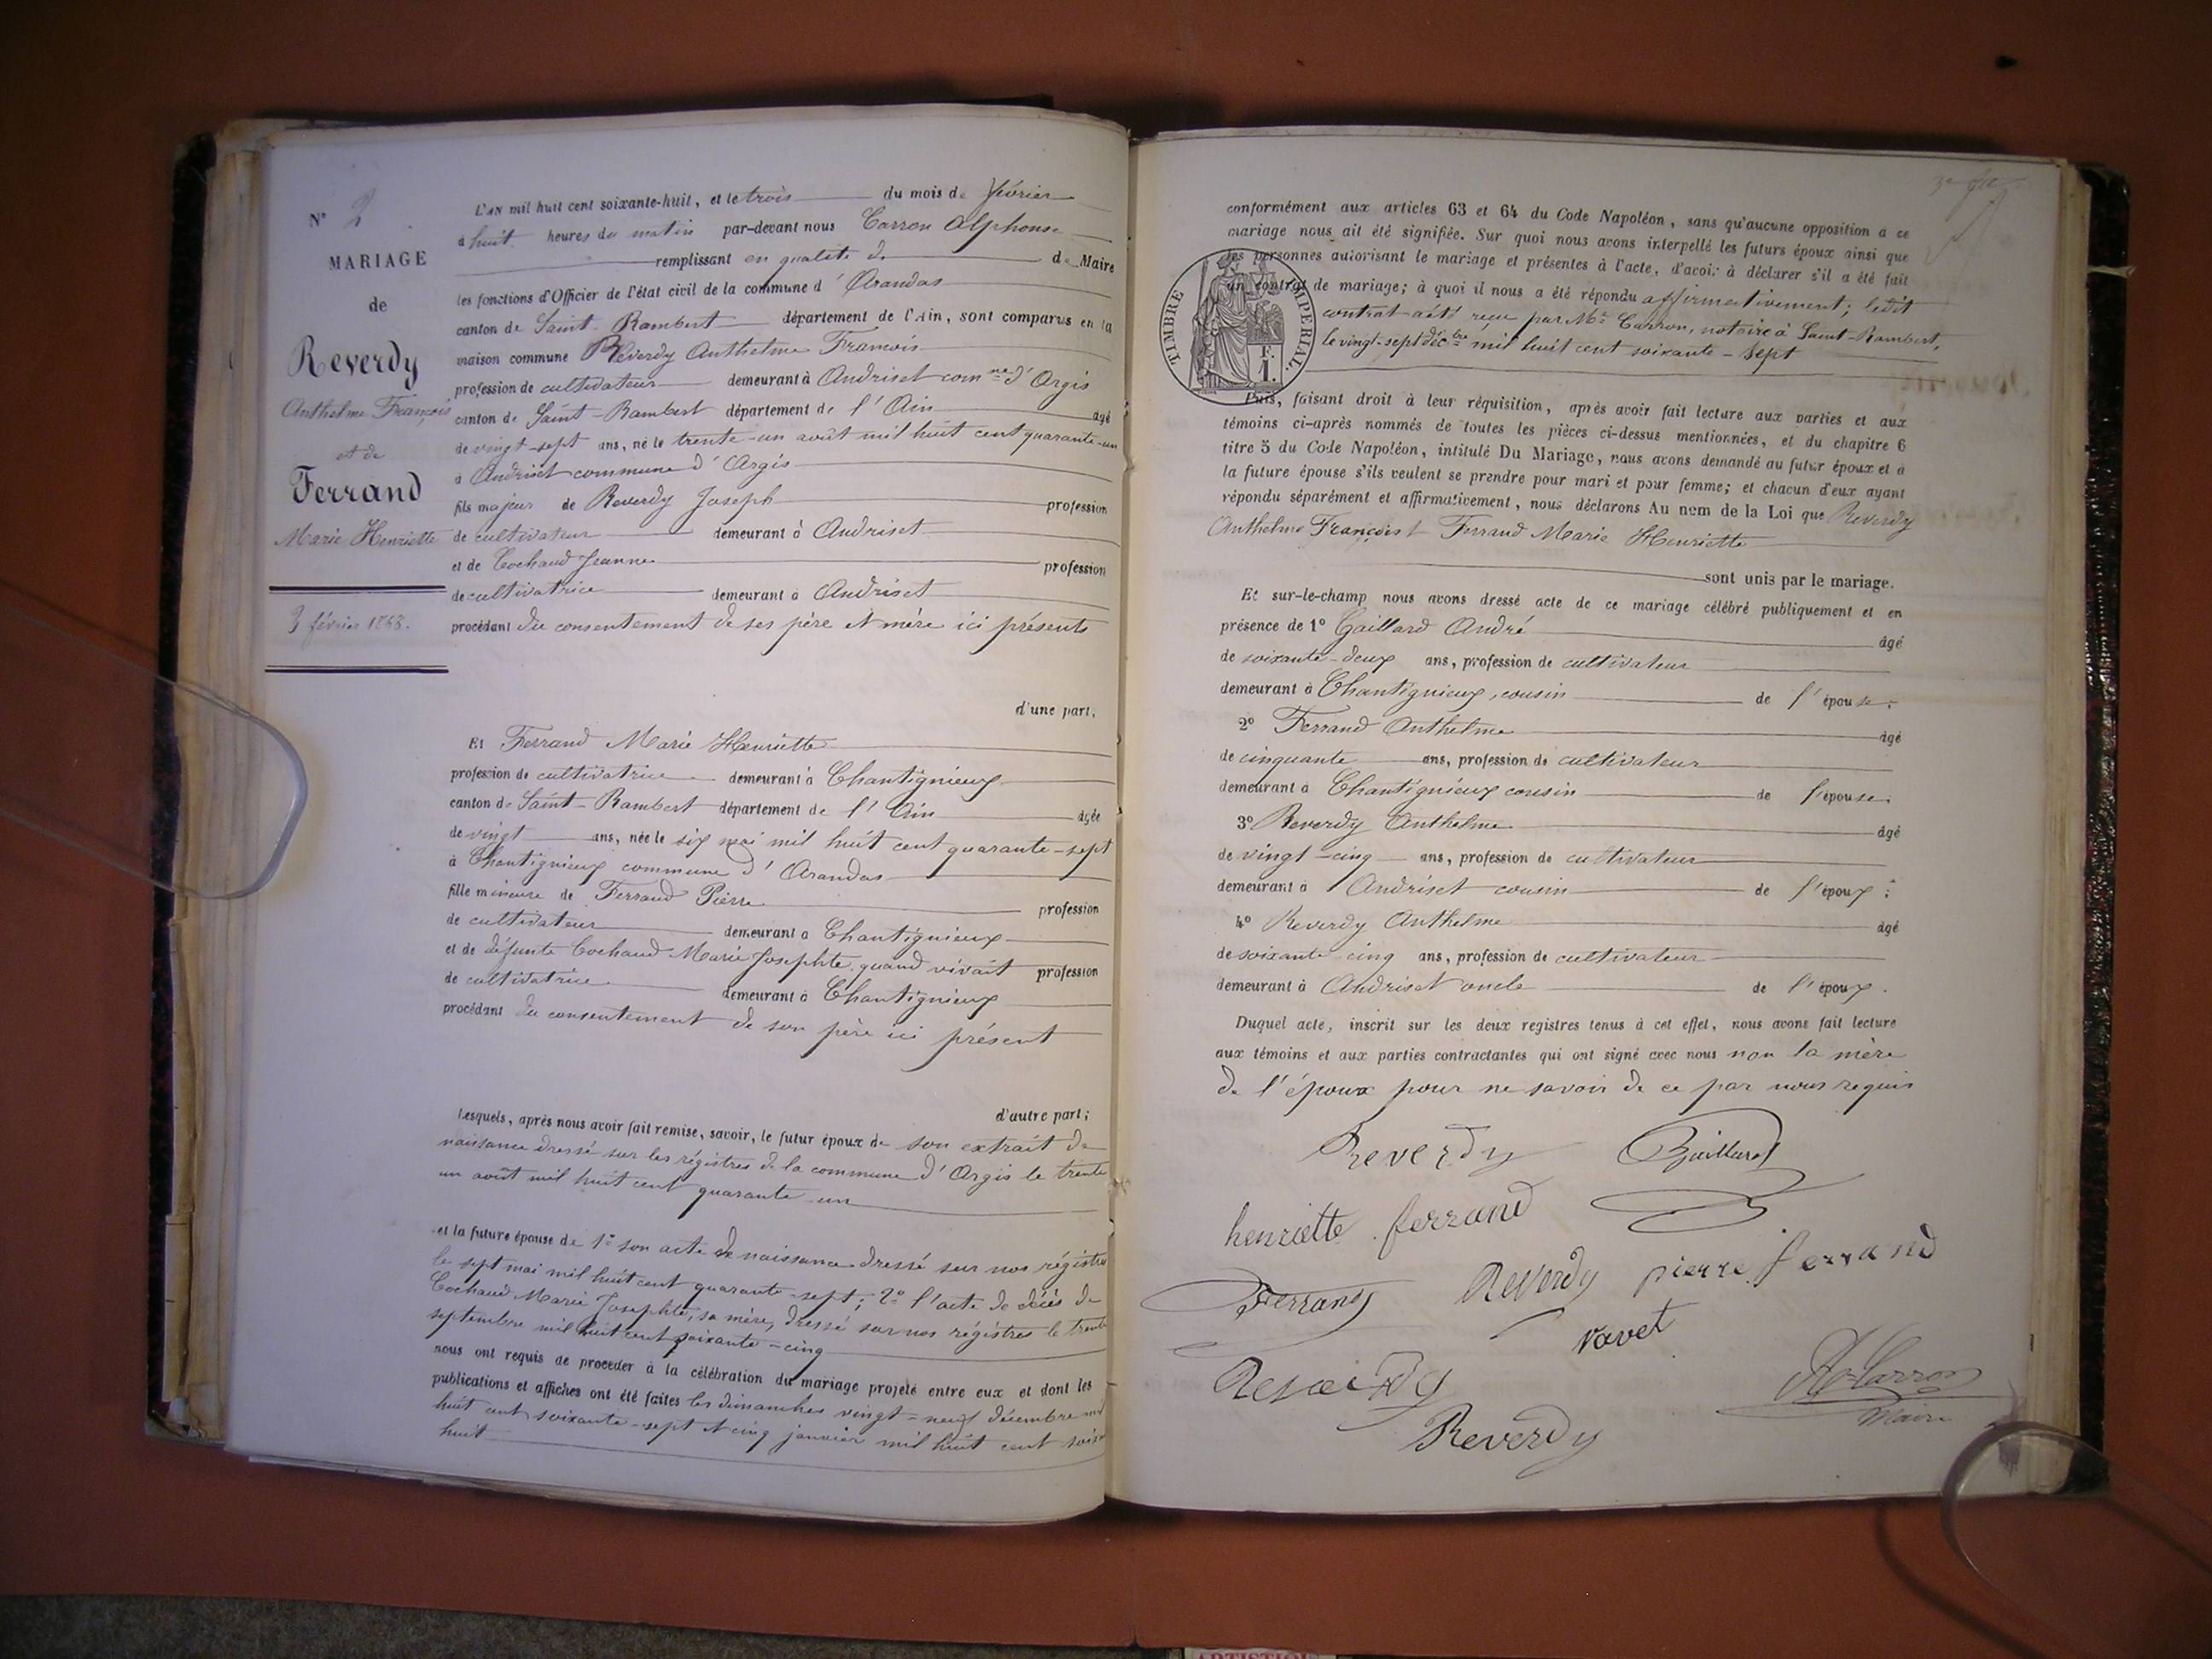 N° 2
MARIAGE
de
Reverdy
Anthelme François
et de
Ferrand
Marie Henriette
3 février 1868.
L'AN mil huit cent soixante-huit, et le trois du mois de février
à huit heures du matin par-devant nous Carron Alphonse
remplissant en qualité de de Maire
les fonctions d'Officier de l'état civil de la commune d' Arandas
canton de Saint-Rambert département de l'Ain, sont comparus en la
maison commune Reverdy Anthelme François
profession de cultivateur demeurant à Andriset comne d'Argis
canton de Saint-Rambert département de l'Ain agé
de vingt-sept ans, né le trente-un août mil huit cent quarante-un
à Andriset commune d'Argis
fils majeur de Reverdy Joseph profession
de cultivateur demeurant à Andriset
et de Cochaud Jeanne profession
de cultivatrice demeurant à Andriset
procédant du consentement de ses père et mère ici présents
d'une part,
Et Ferrand Marie Henriette
profession de cultivatrice demeurant à Chantignieux
canton de Saint-Rambert département de l'Ain agée
de vingt ans, née le six mai mil huit cent quarante-sept
à Chantignieux commune d'Arandas
fille mineure de Ferrand Pierre profession
de cultivateur demeurant à Chantignieux
et de défunte Cochaud Marie Josephte, quand vivait profession
de cultivatrice demeurant à Chantignieux
procédant du consentement de son père ici présent
d'autre part;
Lesquels, après nous avoir fait remise, savoir, le futur époux de son extrait de
naissance dressé sur les régistres de la commune d'Argis le trente
un août mil huit cent quarante-un
et la future épouse de 1° son acte de naissance dressé sur nos régistres
le sept mai mil huit cent quarante-sept; 2° l'acte de décès de
Cochaud Marie Josephte, sa mère, dressé sur nos régistres le trente
septembre mil huit cent soixante-cinq
nous ont requis de procéder à la célébration du mariage projeté entre eux et dont les
publications et affiches ont été faites les dimanches vingt-neuf décembre mil
huit cent soixante-sept et cinq janvier mil huit cent soix
huit
conformément aux articles 63 et 64 du Code Napoléon, sans qu'aucune opposition a ce
mariage nous ait été signifiée. Sur quoi nous avons interpellé les futurs époux ainsi que
les personnes autorisant le mariage et présentes à l'acte, d'avoir à déclarer s'il a été fait
un contrat de mariage; à quoi il nous a été répondu affirmativement; ledit
contrat a été reçu par Me Carron, notaire à Saint-Rambert,
le vingt-sept décbre mil huit cent soixante-sept
TIMBRE IMPERIAL.
F.
1.
Puis, faisant droit à leur réquisition, après avoir fait lecture aux parties et aux
témoins ci-après nommés de toutes les pièces ci-dessus mentionnées, et du chapitre 6
titre 5 du Code Napoléon, intitulé Du Mariage, nous avons demandé au futur époux et à
la future épouse s'ils veulent se prendre pour mari et pour femme; et chacun d'eux ayant
répondu séparément et affirmativement, nous déclarons Au nom de la Loi que Reverdy
Anthelme François et Ferrand Marie Henriette
sont unis par le mariage.
Et sur-le-champ nous avons dressé acte de ce mariage célébré publiquement et en
présence de 1° Gaillard André âgé
de soixante-deux ans, profession de cultivateur
demeurant à Chantignieux, cousin de l'épouse;
2° Ferrand Anthelme âgé
de cinquante ans, profession de cultivateur
demeurant à Chantignieux cousin de l'épouse;
3° Reverdy Anthelme âgé
de vingt-cinq ans, profession de cultivateur
demeurant à Andriset cousin de l'époux;
4° Reverdy Anthelme âgé
de soixante cinq ans, profession de cultivateur
demeurant à Andriset oncle de l'époux.
Duquel acte, inscrit sur les deux registres tenus à cet effet, nous avons fait lecture
aux témoins et aux parties contractantes qui ont signé avec nous non la mère
de l'époux pour ne savoir de ce par nous requis
Reverdy Gaillard
henriette ferrand
Ferrand Reverdy pierre ferrand
ravet
Reverdy
A Carron
Maire